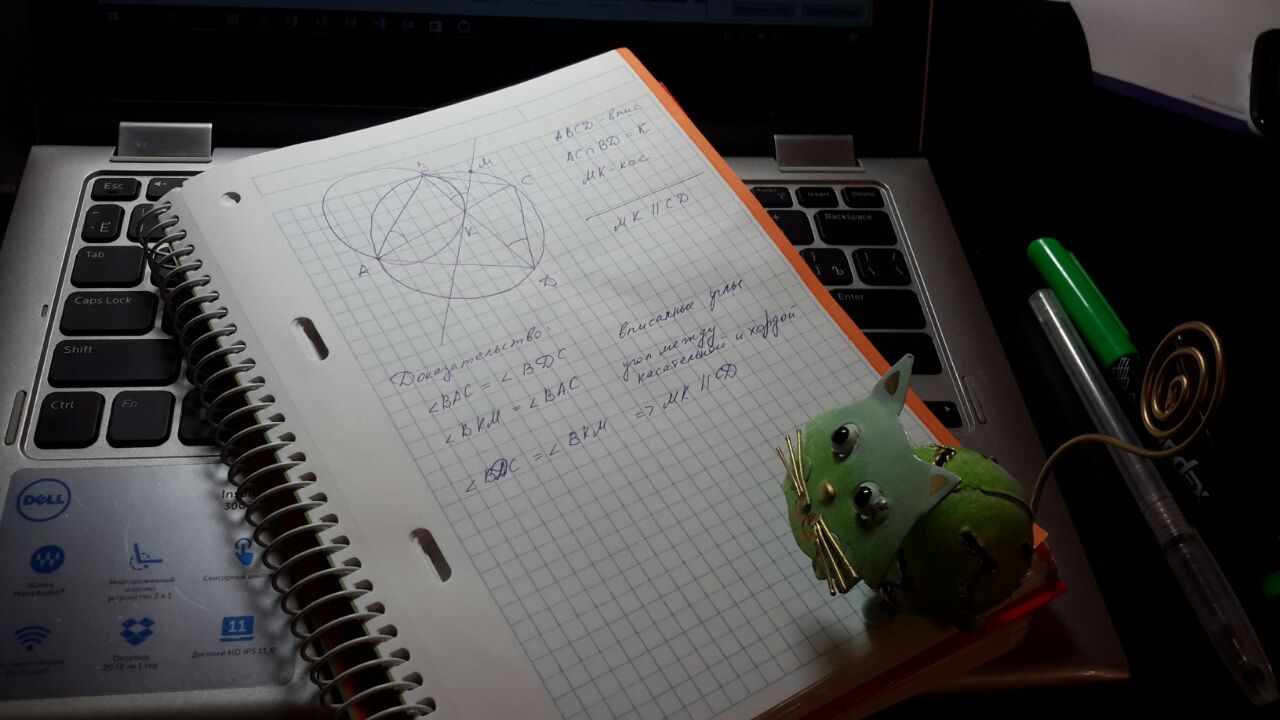 ABCD - впис
AC ∩ BD = K
MK - кас
MK || CD
B
M
C
K
A
D
Доказательство:
∠BAC = ∠BDC вписанные углы
∠BKM = ∠BAC угол между
касательной и хордой
∠BDC = ∠BKM => MK || CD
Esc
Tab
Caps Lock
Shift
Ctrl
Fn
Ё
PrtScr
Insert
Delete
Backspace
Ъ
Enter
DELL
Waves
MaxxAudio®
Многорежимный
шарнир,
устройство 2 в 1
Сенсорный
Dropbox
20 Гб на 1 год
11
Дисплей HD IPS 11,6"